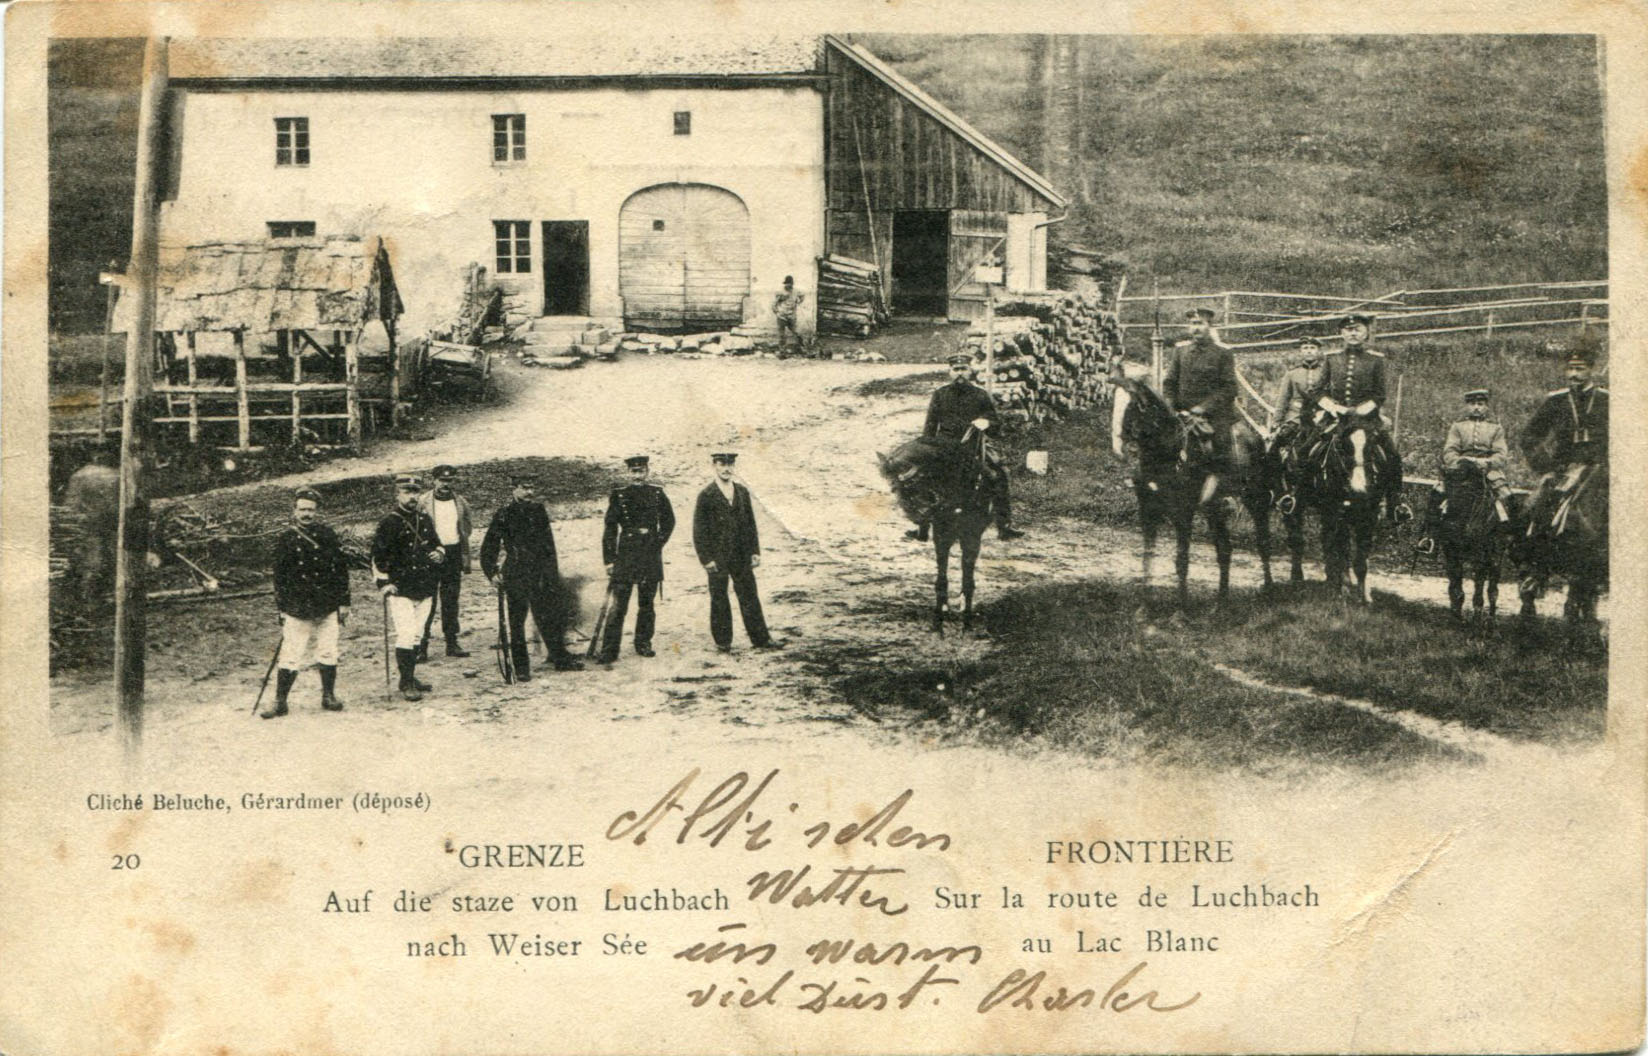 Cliché Beluche, Gérardmer (déposé)
20
GRENZE
Auf die staze von Luchbach
nach Weiser Sée
FRONTIÈRE
Sur la route de Luchbach
au Lac Blanc
schen
Watter
un warm
viel Dust. Charler